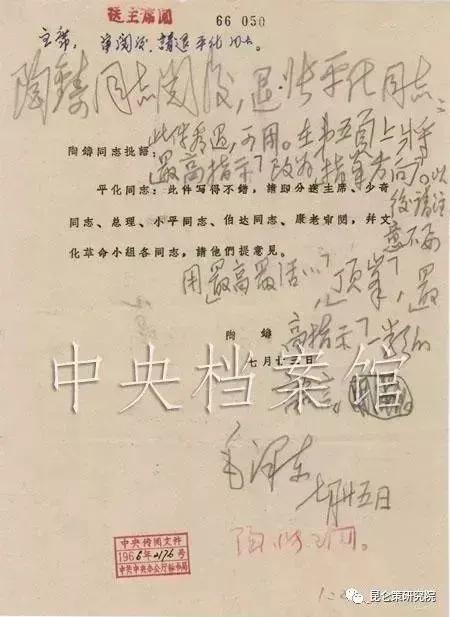 送主席閱
66 050
主席，审閱后，請退平化同志。
陶鑄同志閱后，退张平化同志：
此件看过，可用。在第五頁上将
「最高指示」改为「指导方向」。以
后請注
意不要
用「最高最活…」，「顶峯」，「最
高指示」一类的
語言。
陶鑄同志批語：
平化同志：此件写得不錯，請即分送主席、少奇
同志、总理、小平同志、伯达同志、康老审閱，幷文
化革命小組各同志，請他們提意見。
陶 鑄
七月廿三日
中央档案馆
毛泽东
七月廿五日
中央传閱文件
1966年2176号
中共中央办公厅秘书局
昆仑策研究院